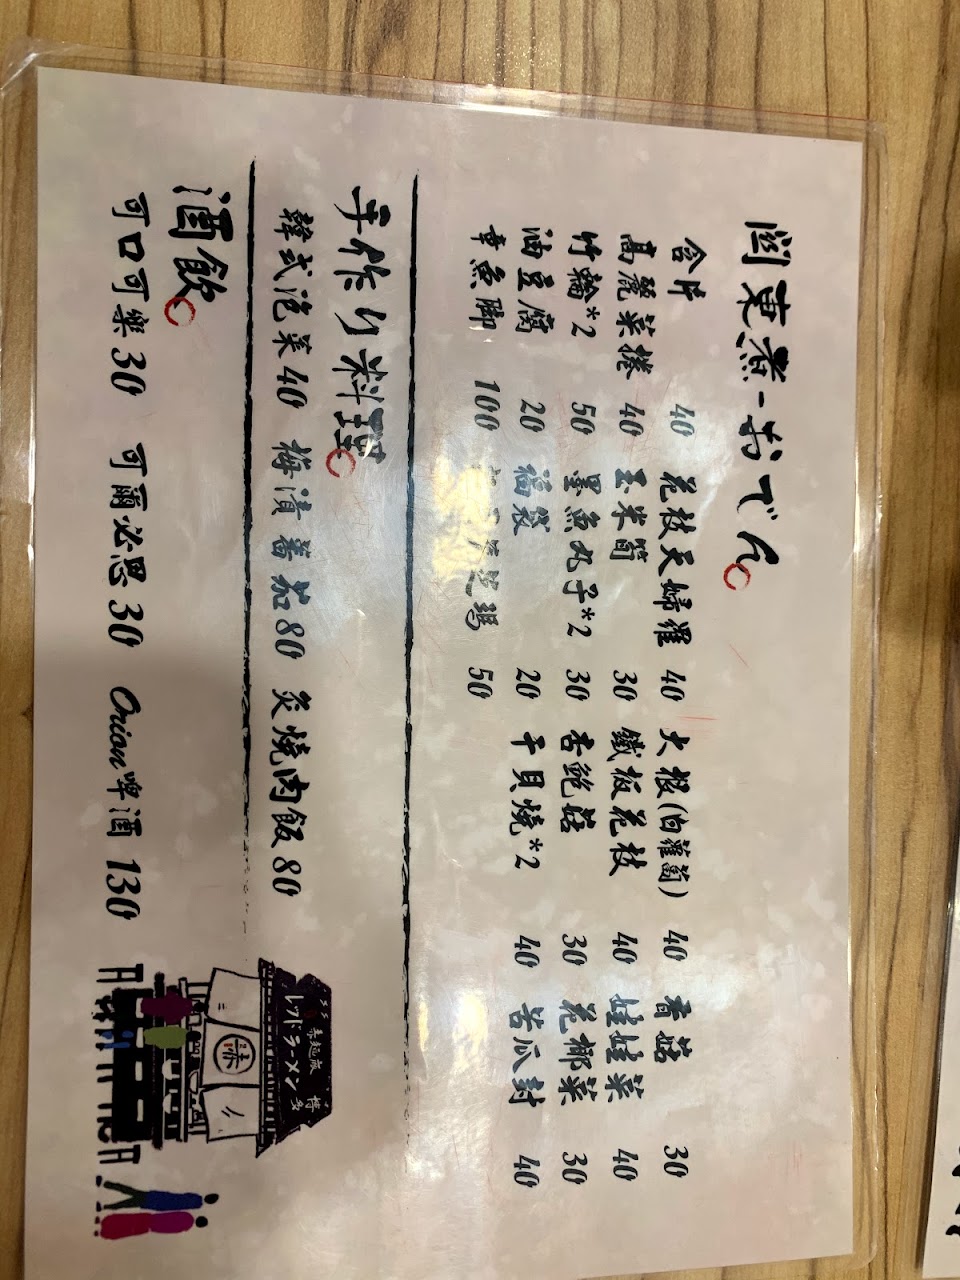 関東煮-おでん
合片 40 花枝天婦羅 40 大根(白蘿蔔) 40 香菇 30
高麗菜捲 40 玉米筍 30 鐵板花枝 40 娃娃菜 40
竹輪*2 50 墨魚丸子*2 30 杏鮑菇 30 花椰菜 30
油豆腐 20 福袋 20 干貝燒*2 40 苦瓜封 40
章魚脚 100 50
手作り料理
韓式泡菜40 梅漬番茄80 炙燒肉飯80
酒飲
可口可樂30 可爾必思30 Orion啤酒 130
赤麺廠 博多
レッドラーメン
赤